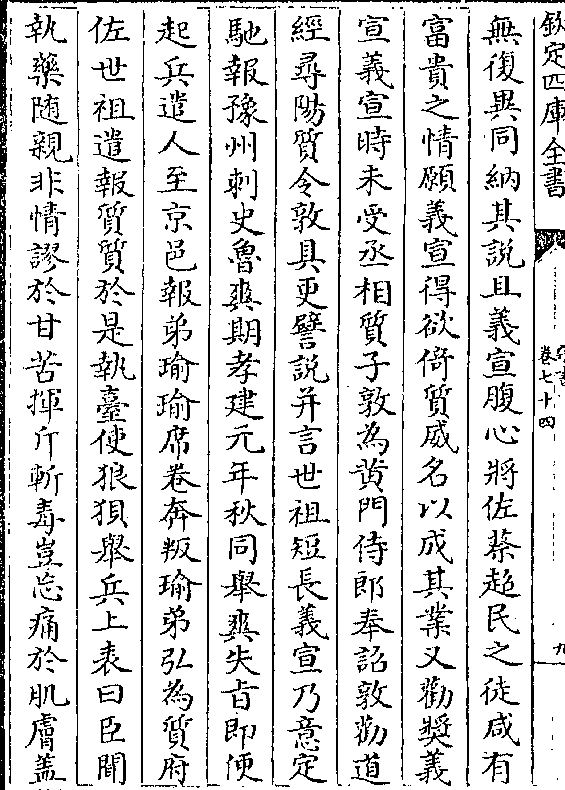 欽定四庫全書
卷七十四
九
無復異同納其說且義宣腹心將佐蔡超民之徒咸有
富貴之情願義宣得欲倚質威名以成其業又勸奬義
宣義宣時未受丞相質子敦為黄門侍郎奉詔敦勸道
經尋陽質令敦具更譬說并言世祖短長義宣乃意定
馳報豫州刺史魯爽期孝建元年秋同舉爽失旨即便
起兵遣人至京邑報弟瑜瑜席卷奔叛瑜弟弘為質府
佐世祖遣報質質於是執臺使狼狽舉兵上表曰臣聞
執藥随親非情謬於甘苦揮斤斬毒豈忘痛於肌膚盖